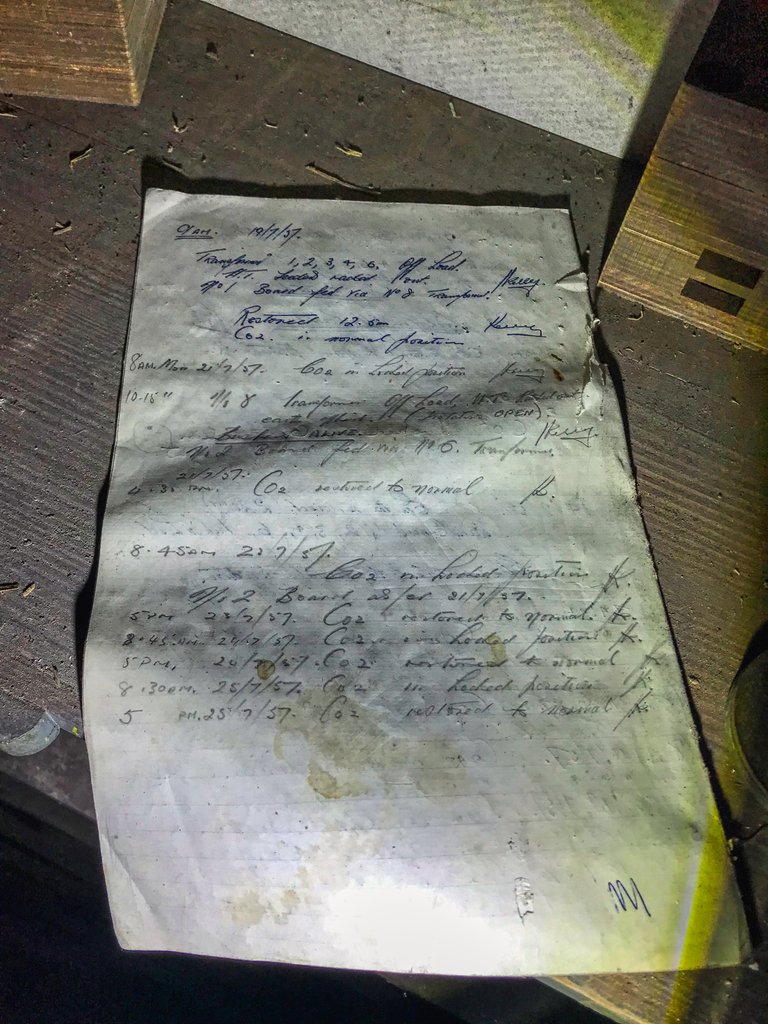 9 AM. 19/7/57.
Transformer 1, 2, 3, 4, 6, Off Load.
H.T. locked racked out.
No 1 Board fed via No 8 Transformer.
Restored 12.5m
CO2 in normal position
8 AM. Mon 22/7/57. CO2 in locked position
10.15 " No 8 transformer Off Load. H.T.
OPEN).
ALIVE.
No 2 Board fed via No 6. Transformer
22/7/57.
4.35 pm. CO2 restored to normal K.
8.45am 23/7/57.
CO2 in locked position K.
No. 2 Board as for 21/7/57.
5pm 23/7/57. CO2 restored to normal. K.
8.45 AM. 24/7/57. CO2 in locked position K.
5 PM. 24/7/57. CO2 restored to normal K.
8.30am. 25/7/57. CO2 in locked position K.
5 PM. 25/7/57. CO2 restored to normal K.